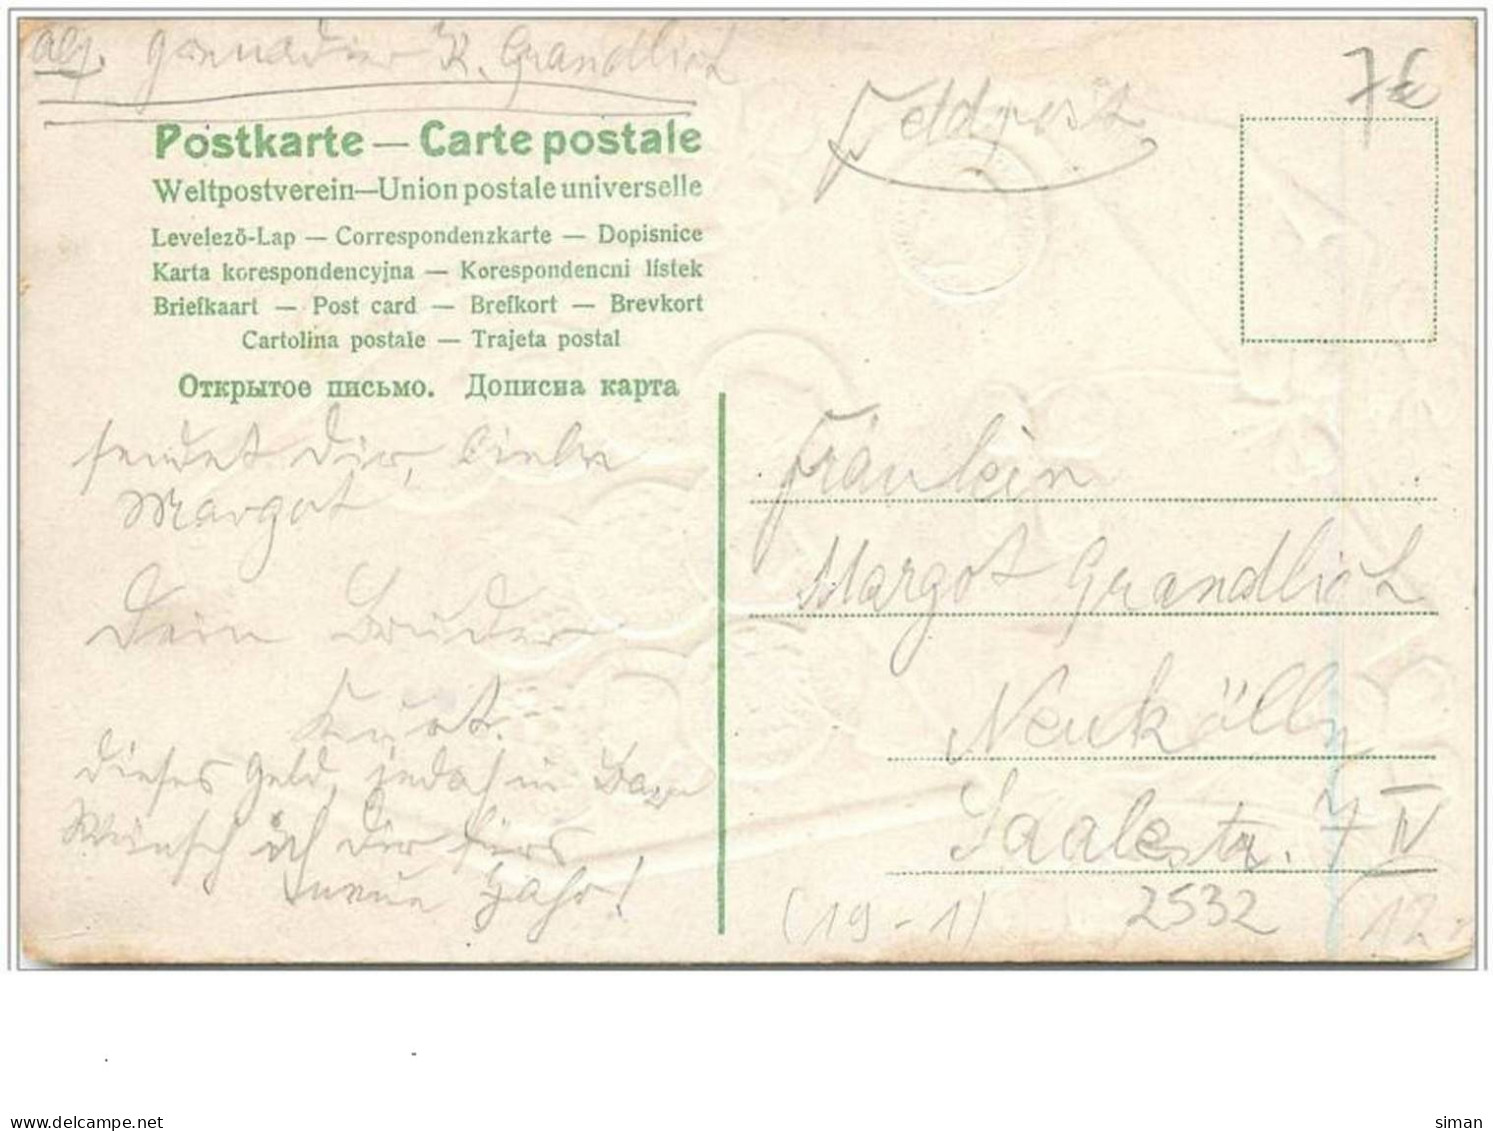 abs. Grenadier K. Grandlich
Feldpost
7€
Postkarte — Carte postale
Weltpostverein—Union postale universelle
Levelező-Lap — Correspondenzkarte — Dopisnice
Karta korespondencyjna — Korespondencni lístek
Briefkaart — Post card — Brefkort — Brevkort
Cartolina postale — Trajeta postal
Открытое письмо. Дописна карта
sendet Dir, liebe
Margot
Dein Bruder
Kurt.
dieses Geld, jedoch in
Wünsch ich Dir fürs
neue Jahr!
Fräulein
Margot Grandlich
Neukölln
Saalestr. 7 IV
(19-1) 2532 12
delcampe.net
siman